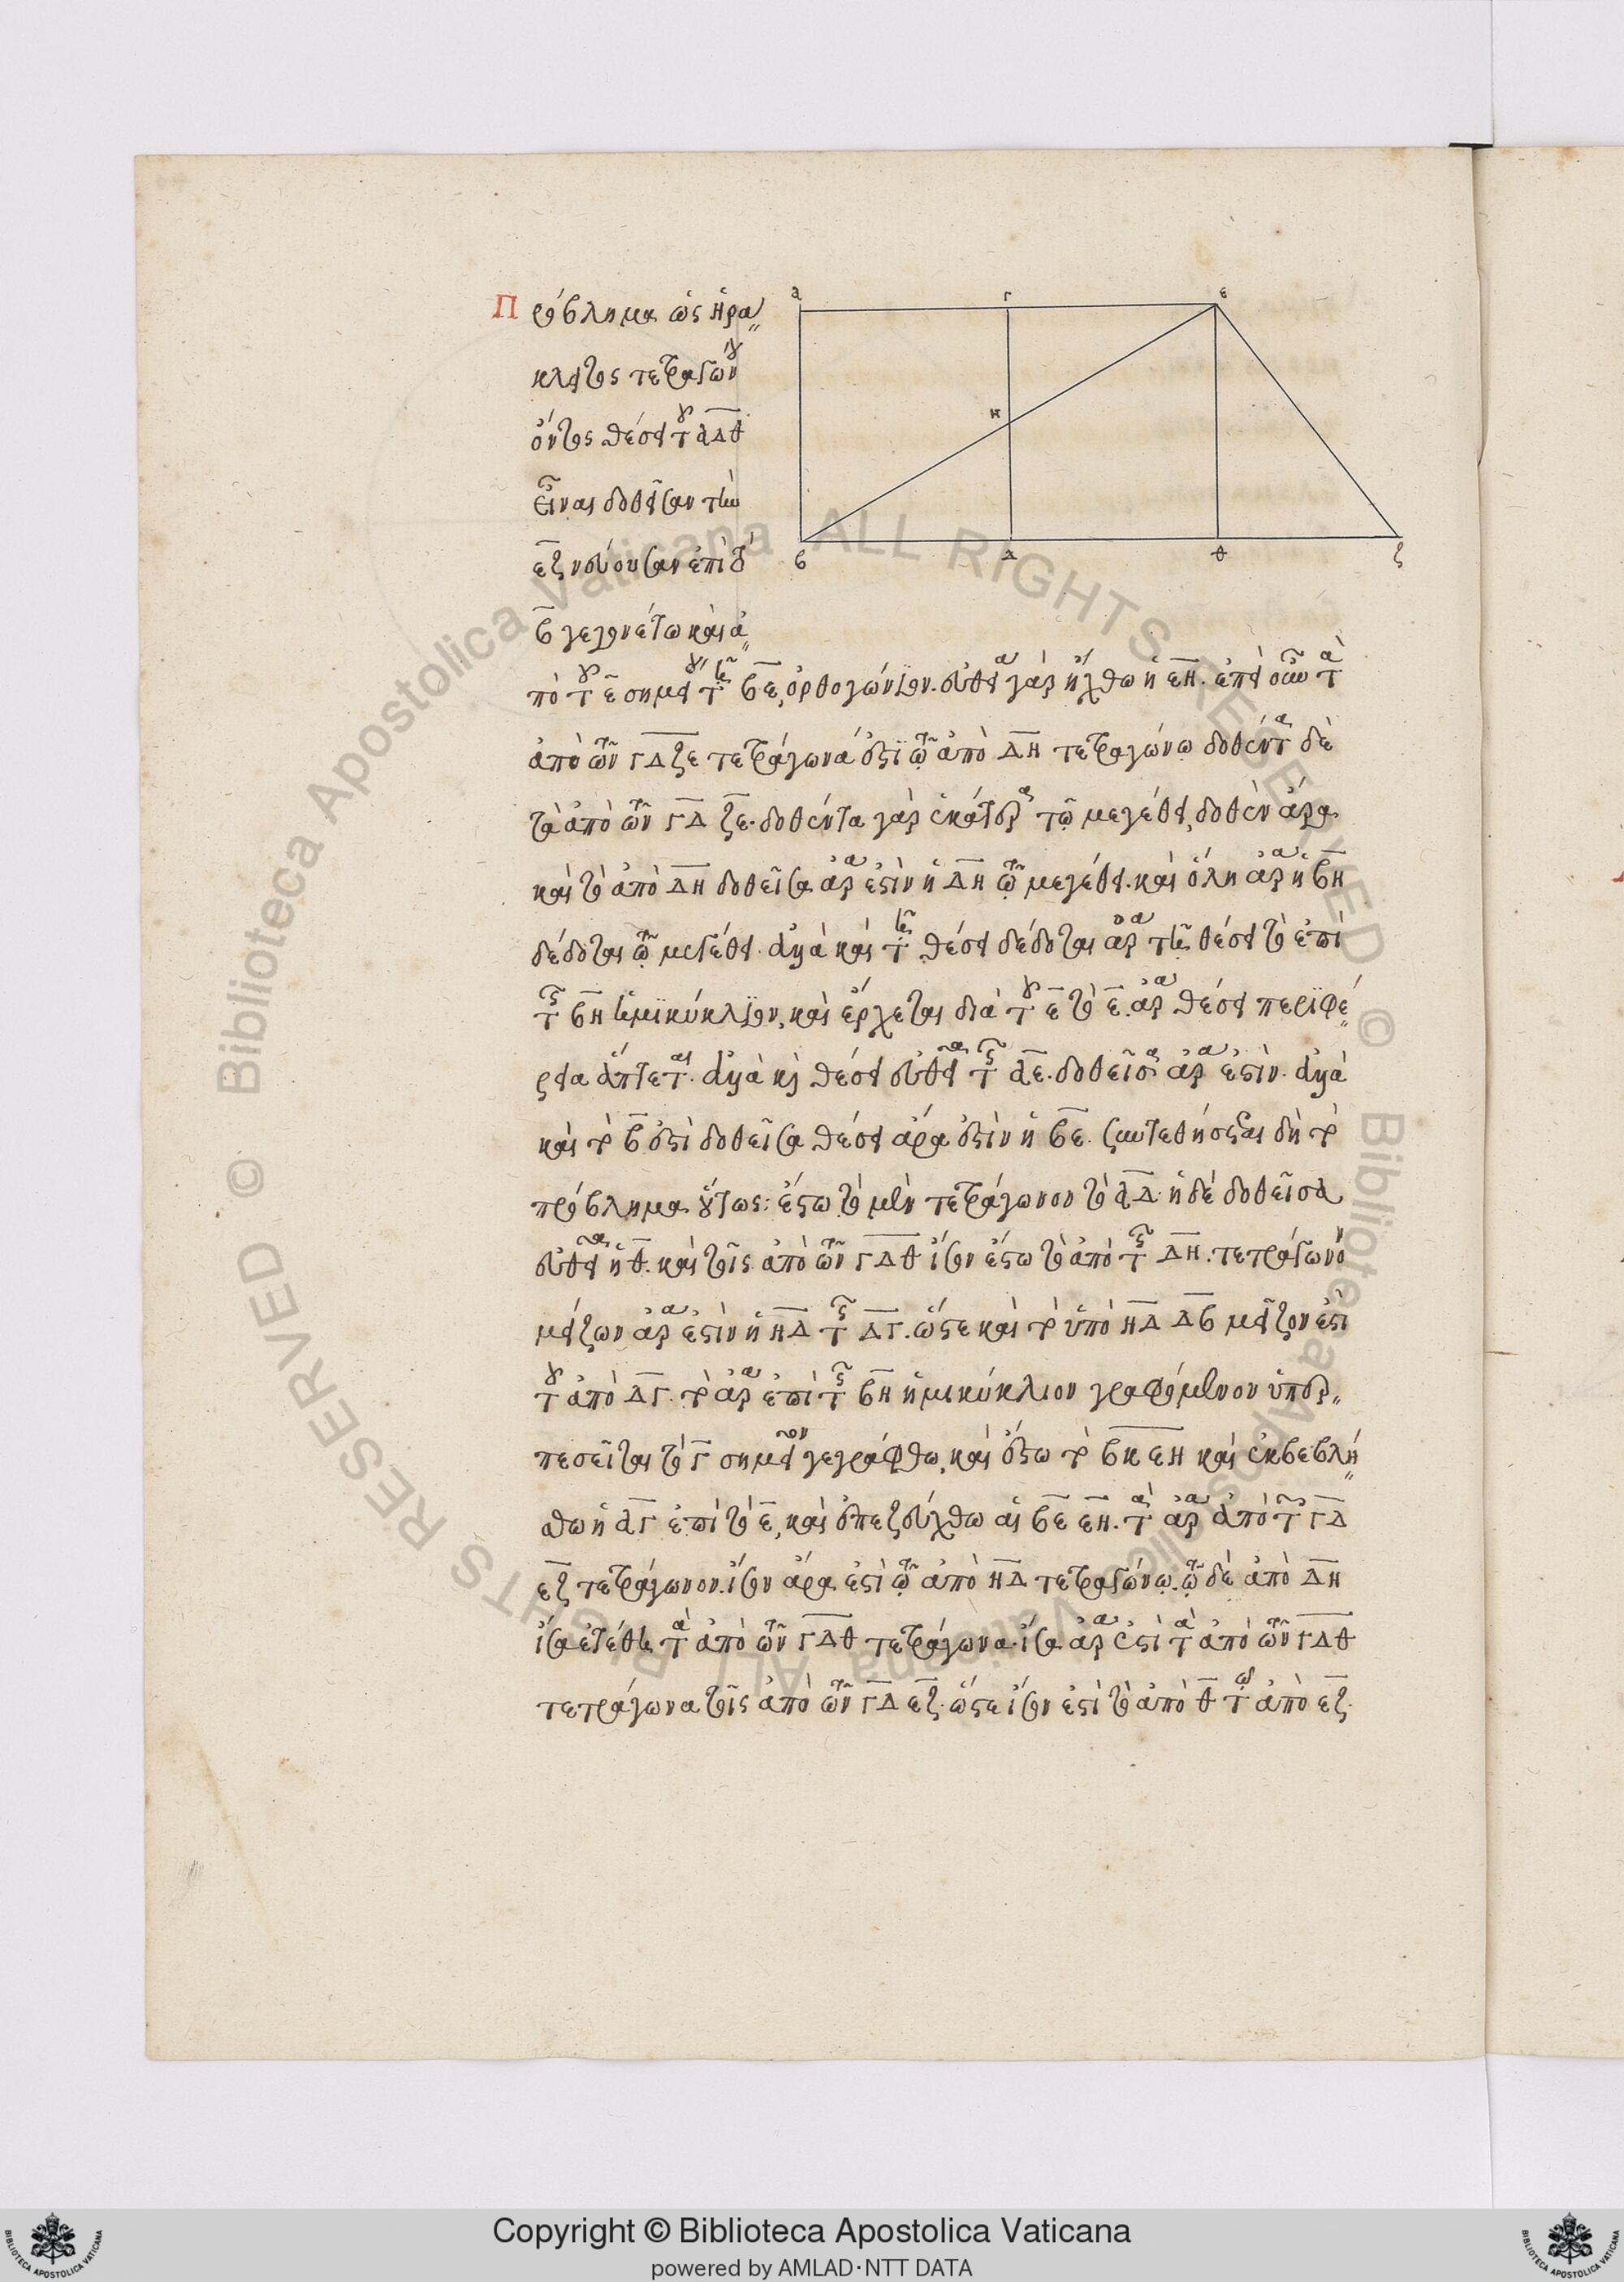 Πρόβλημα ὡς Ἡρά
κλειτος τετραγώνου
ὄντος θέσει τοῦ ΑΔ θ
εῖναι δοθεῖσαν τὴν
ΕΖ νεύουσαν ἐπὶ τὸ
Β γεγονέτω καὶ ἀ
πὸ τοῦ Ε σημείου τῇ ΒΕ ὀρθογώνιον. εὐθεῖα γὰρ ἤχθω ἡ ΕΗ. ἐπεὶ οὖν τὰ
ἀπὸ τῶν ΓΔ ΖΕ τετράγωνά ἐστι τῷ ἀπὸ ΔΗ τετραγώνῳ δοθέντα δὲ
τὰ ἀπὸ τῶν ΓΔ ΖΕ. δοθέντα γὰρ ἑκάτερα τῷ μεγέθει, δοθὲν ἄρα
καὶ τὸ ἀπὸ ΔΗ δοθεῖσα ἄρα ἐστὶν ἡ ΔΗ τῷ μεγέθει. καὶ ὅλη ἄρα ἡ ΒΗ
δέδοται τῷ μεγέθει. ἀλλὰ καὶ τῇ θέσει δέδοται ἄρα τῇ θέσει τὸ ἐπὶ
τῆς ΒΗ ἡμικύκλιον, καὶ ἔρχεται διὰ τοῦ Ε τὸ Ε. ἄρα θέσει περιφε
ρείας ἅπτεται. ἀλλὰ καὶ θέσει εὐθείας τῆς ΑΕ. δοθεῖσα ἄρα ἐστίν. ἀλλὰ
καὶ τὸ Β ἐστὶ δοθεῖσα θέσει ἄρα ἐστὶν ἡ ΒΕ. συντεθήσεται δὴ τὸ
πρόβλημα οὕτως: ἔστω τὸ μὲν τετράγωνον τὸ ΑΔ ἡ δὲ δοθεῖσα
εὐθεῖα ἡ Θ. καὶ τοῖς ἀπὸ τῶν ΓΔ Θ ἴσον ἔστω τὸ ἀπὸ τῆς ΔΗ. τετράγωνον
μείζων ἄρα ἐστὶν ἡ ΗΔ τῆς ΔΓ. ὥστε καὶ τὸ ὑπὸ ΗΔ ΔΒ μεῖζον ἐστὶ
τοῦ ἀπὸ ΔΓ. τὸ ἄρα ἐπὶ τῆς ΒΗ ἡμικύκλιον γραφόμενον ὑπερ
πεσεῖται τὸ Γ σημεῖον γεγράφθω, καὶ ἔστω τὸ ΒΚΕΗ καὶ ἐκβεβλή
θω ἡ ΑΓ ἐπὶ τὸ Ε, καὶ ἐπεζεύχθω αἱ ΒΕ ΕΗ. τὰ ἄρα ἀπὸ τῶν ΓΔ
ΕΖ τετράγωνον. ἴσον ἄρα ἐστὶ τῷ ἀπὸ ΗΔ τετραγώνῳ. τῷ δὲ ἀπὸ ΔΗ
ἴσα ἐτέθη τὰ ἀπὸ τῶν ΓΔ Θ τετράγωνα. ἴσα ἄρα ἐστὶ τὰ ἀπὸ τῶν ΓΔ Θ
τετράγωνα τοῖς ἀπὸ τῶν ΓΔ ΕΖ. ὥστε ἴσον ἐστὶ τὸ ἀπὸ Θ τῷ ἀπὸ ΕΖ.
α Γ ε
κ
β Δ θ ζ
© Biblioteca Apostolica Vaticana ALL RIGHTS RESERVED © Biblioteca Apostolica Vaticana ALL RIGHTS RESERVED
Copyright © Biblioteca Apostolica Vaticana
powered by AMLAD·NTT DATA
BIBLIOTECA APOSTOLICA VATICANA
BIBLIOTECA APOSTOLICA VATICANA